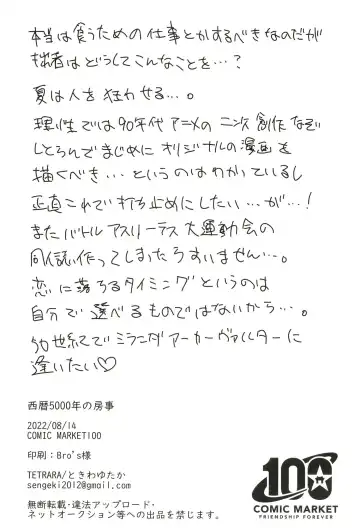 本当は食うための仕事とかするべきなのだが
拙者はどうしてこんなことを…？
夏は人を狂わせる…。
理性では90年代アニメの二次創作なぞ
しとらんでまじめにオリジナルの漫画を
描くべき…というのはわかっているし
正直これで打ち止めにしたい…が…！
またバトルアスリーテス大運動会の
同人誌作ってしまったらすいません…。
恋に落ちるタイミングというのは
自分で選べるものではないから…。
50世紀でミランダアーカーヴァルターに
逢いたい♡
西暦5000年の房事
2022/08/14
COMIC MARKET100
印刷：Bro's様
TETRARA/ときわゆたか
sengeki2012@gmail.com
無断転載・違法アップロード・
ネットオークション等への出品を禁じます。
100
COMIC MARKET
FRIENDSHIP FOREVER